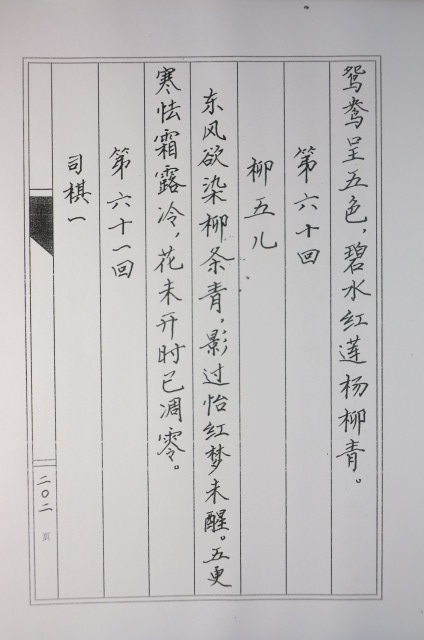 鸳鸯呈五色，碧水红莲杨柳青。
第六十回
柳五儿
东风欲染柳条青，影过怡红梦未醒。五更
寒怯霜露冷，花未开时已凋零。
第六十一回
司棋一
二〇二 页